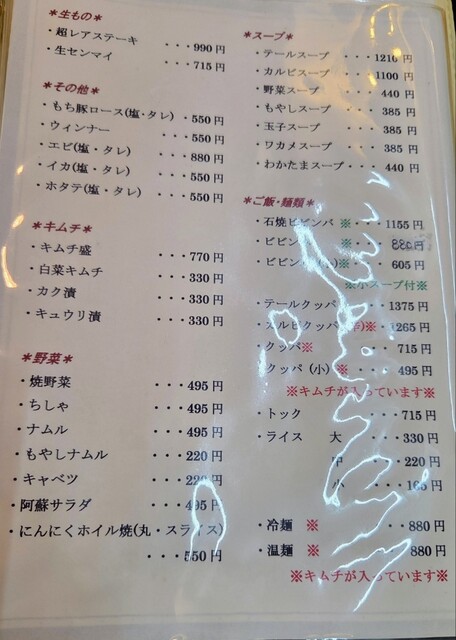 ＊生もの＊
・超レアステーキ ・・・990円
・生センマイ ・・・715円
＊その他＊
・もち豚ロース(塩・タレ) ・550円
・ウィンナー ・・・550円
・エビ(塩・タレ) ・・・880円
・イカ(塩・タレ) ・・・550円
・ホタテ(塩・タレ) ・・・550円
＊キムチ＊
・キムチ盛 ・・・770円
・白菜キムチ ・・・330円
・カク漬 ・・・330円
・キュウリ漬 ・・・330円
＊野菜＊
・焼野菜 ・・・495円
・ちしゃ ・・・495円
・ナムル ・・・495円
・もやしナムル ・・・220円
・キャベツ ・・・220円
・阿蘇サラダ ・・・495円
・にんにくホイル焼(丸・スライス)
・・・550円
＊スープ＊
・テールスープ ・・・1210円
・カルビスープ ・・・1100円
・野菜スープ ・・・440円
・もやしスープ ・・・385円
・玉子スープ ・・・385円
・ワカメスープ ・・・385円
・わかたまスープ・・・440円
＊ご飯・麺類＊
・石焼ビビンバ ※・・・1155円
・ビビン ※・・・880円
・ビビン ※・・・605円
※小スープ付※
・テールクッパ ・・・1375円
・カルビクッパ(辛)※・・1265円
・クッパ※ ・・・715円
・クッパ(小)※ ・・・495円
※キムチが入っています※
・トック ・・・715円
・ライス 大 ・・・330円
中 ・・・220円
小 ・・・165円
・冷麺 ※ ・・880円
・温麺 ※ ・・・880円
※キムチが入っています※